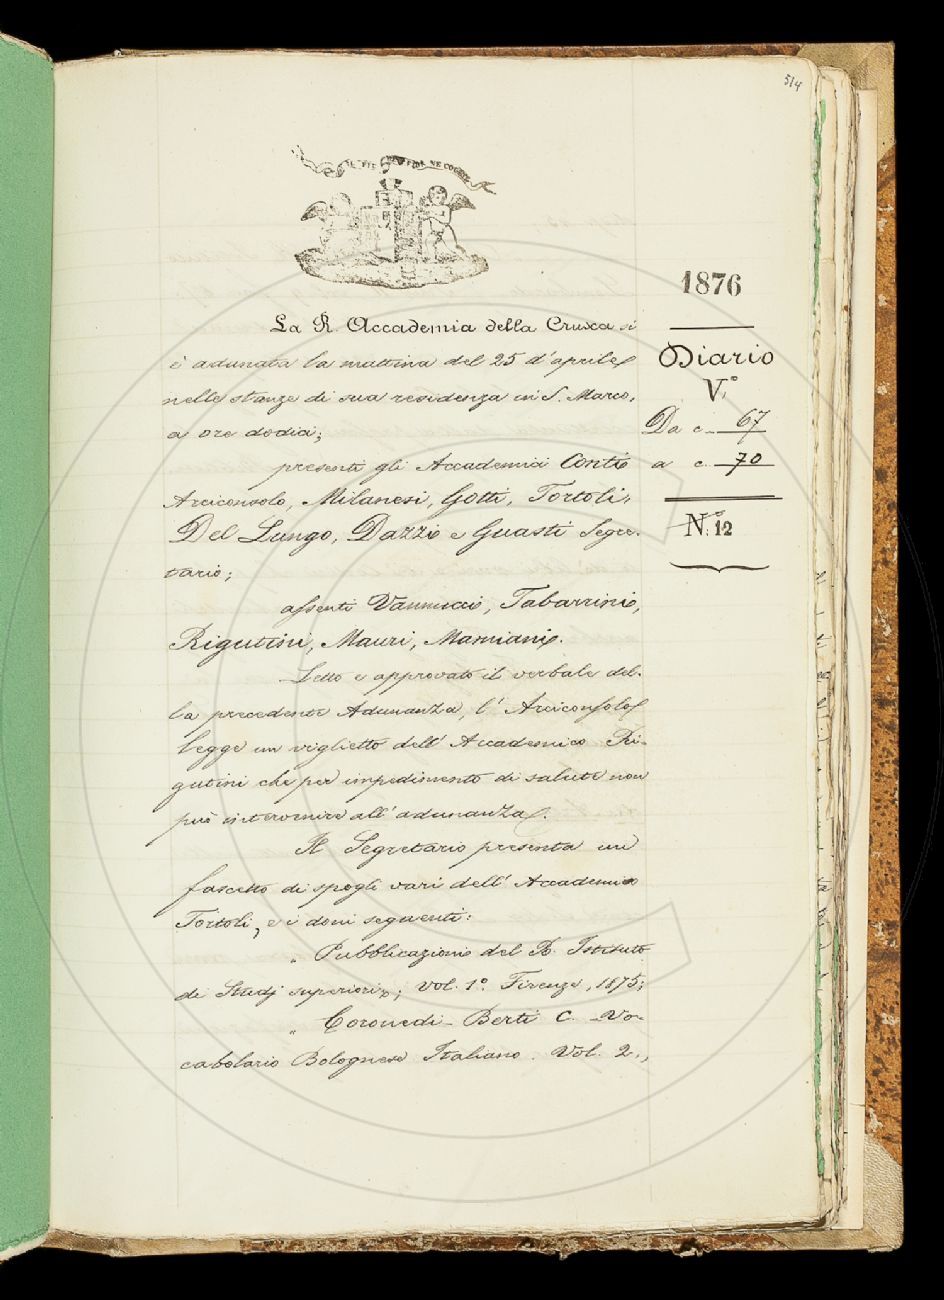 514
IL PIÙ BEL FIOR NE COGLIE
1876
Diario
V.°
Da c. 67
a c. 70
N.° 12
La R. Accademia della Crusca si
è adunata la mattina del 25 d'aprile
nelle stanze di sua residenza in S. Marco,
a ore dodici;
presenti gli Accademici Conti
Arciconsolo, Milanesi, Gotti, Tortoli,
Del Lungo, Dazzi e Guasti Segre-
tario;
assenti Vannucci, Tabarrini,
Rigutini, Mauri, Mamiani.
Letto e approvato il verbale del-
la precedente Adunanza, l'Arciconsolo
legge un viglietto dell'Accademico Ri-
gutini che per impedimento di salute non
può intervenire all'adunanza.
Il Segretario presenta un
fascetto di spogli vari dell'Accademico
Tortoli, e i doni seguenti:
„ Pubblicazioni del R. Istituto
di Studj superiori; vol. 1°. Firenze, 1875;
„ Coronedi-Berti C. - Vo-
cabolario Bolognese Italiano. Vol. 2.,